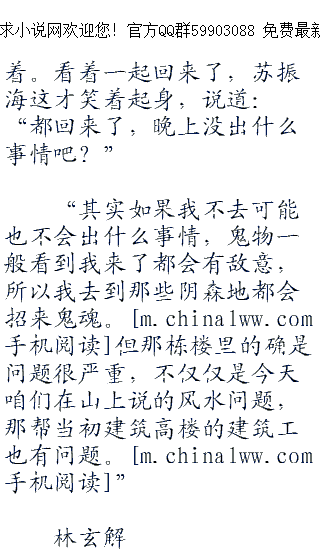 求小说网欢迎您！官方QQ群59903088 免费最新
着。看着一起回来了，苏振
海这才笑着起身，说道：
“都回来了，晚上没出什么
事情吧？”
“其实如果我不去可能
也不会出什么事情，鬼物一
般看到我来了都会有敌意，
所以我去到那些阴森地都会
招来鬼魂。[m.china1ww.com
手机阅读]但那栋楼里的确是
问题很严重，不仅仅是今天
咱们在山上说的风水问题，
那帮当初建筑高楼的建筑工
也有问题。[m.china1ww.com
手机阅读]”
林玄解